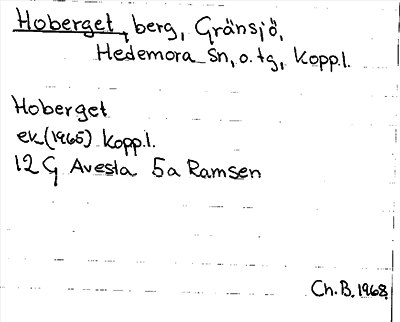 Hoberget, berg, Gränsjö,
Hedemora sn, o. tg, Kopp.l.
Hoberget
ek (1965) Kopp.l.
12 G Avesta 5a Ramsen
Ch. B. 1968.